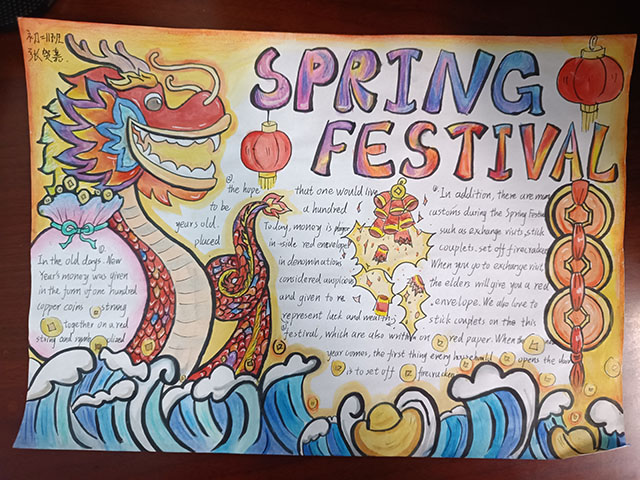 初二11班
SPRING
FESTIVAL
①.
In the old days, New
Year's money was given
in the form of one hundred
copper coins strong
together on a red
string and
②
the hope that one would live
to be a hundred
years old.
Today, money is
placed in-side red envelopes
in denominations
considered auspicious
and given to re
represent luck and wealth.
In addition, there are many
customs during the Spring Festival
such as exchange visits, stick
couplets, set off firecrackers
When you go to exchange visit,
the elders will give you a red
envelope. We also love to
stick couplets on the this
festival, which are also written on red paper. When the
year comes, the first thing every household opens the door
is to set off firecracker